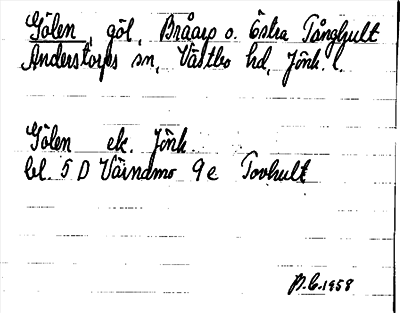 Gölen, göl, Bråarp o. Östra Tånghult
Anderstorps sn, Västbo hd, Jönk. l.
Gölen ek. Jönk.
bl. 5 D Värnamo 9 e Tovhult
P.C. 1958